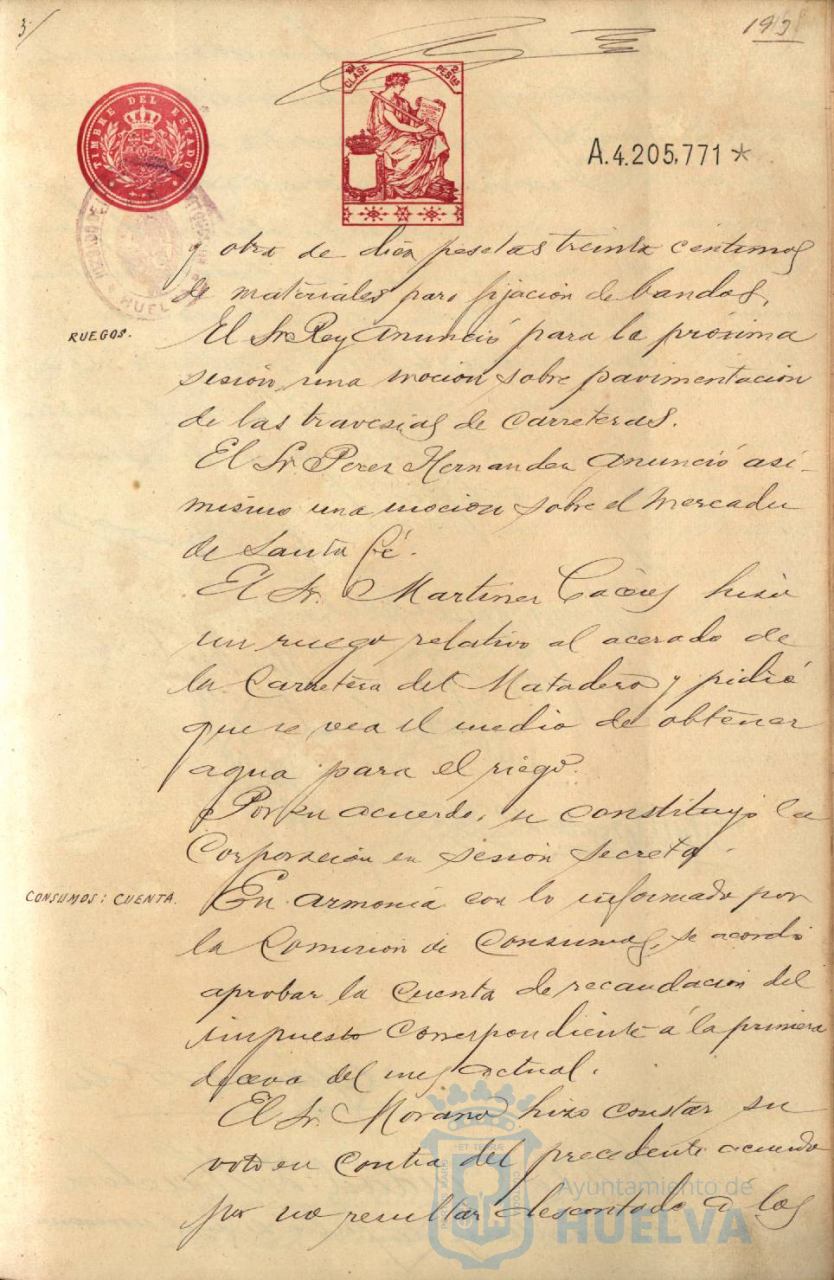 3/
193
TIMBRE DEL ESTADO
CLASE
PESTAS
2
A.4.205,771 *
HUEL
y otra de diez pesetas treinta centimos
de materiales para fijacion de bandos.
RUEGOS.
El Sr. Rey anunció para la próxima
sesión una mocion sobre pavimentacion
de las travesias de carreteras.
El Sr. Perez Hernandez anunció asi-
mismo una mocion sobre el mercado
de Santa Fé.
El Sr. Martinez Cáceres hizo
un ruego relativo al acerado de
la Carretera del Matadero y pidió
que se vea el medio de obtener
agua para el riego.
Por su acuerdo, se constituyó la
Corporación en sesión secreta.
CONSUMOS: CUENTA.
En armonía con lo informado por
la Comision de Consumos, se acordó
aprobar la cuenta de recaudación del
impuesto correspondiente á la primera
decena del mes actual.
El Sr. Morano hizo constar su
voto en contra del precedente acuerdo
por no resultar descontado a los
Ayuntamiento de
HUELVA